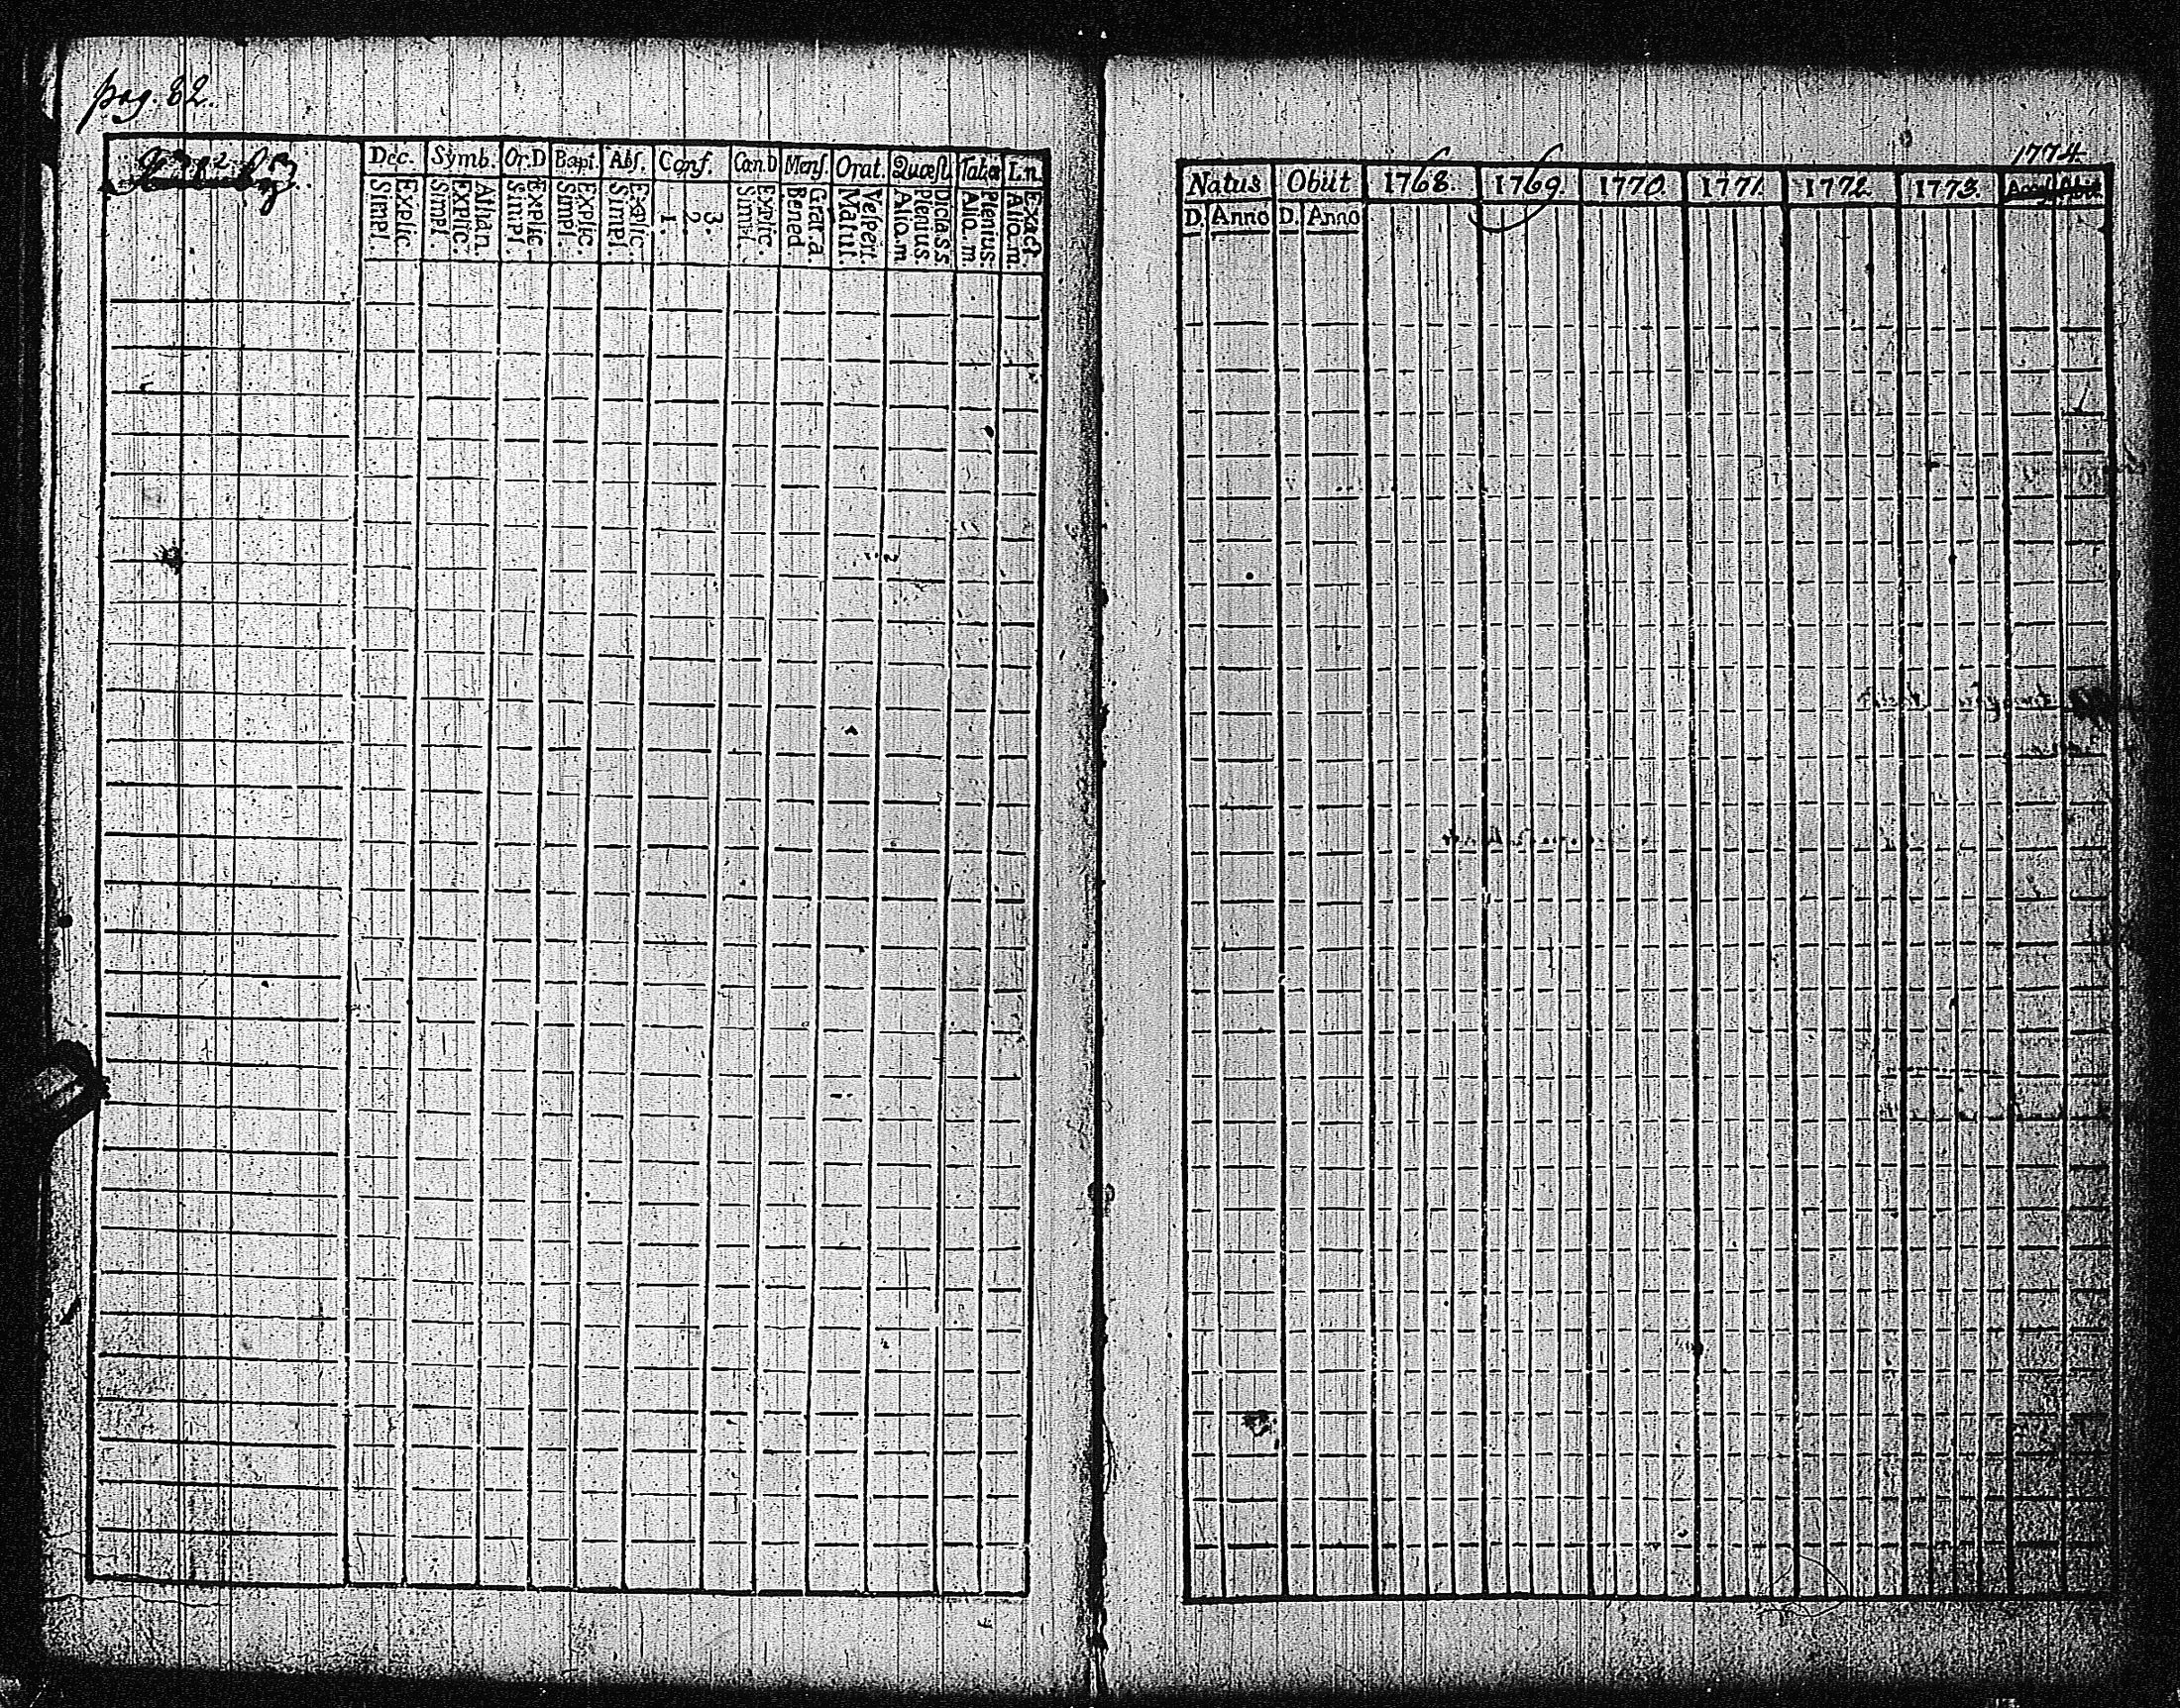 pag. 82.
Dec. Symb. Or.D Bapt. Abſ. Conf. Cœn.D Menſ. Orat. Quæſt. Tabu Ln.
Explic. Simpl. Athan. Explic. Simpl. Explic. Simpl. Explic. Simpl. Explic. Simpl. 3. 2. 1. Explic. Simpl. Grat.a. Bened Veſpert. Matut. Dicta.s.s. Plenius Aliq.m Plenius Aliq.m Exact. Aliq.m.
1774.
Natus Obiit 1768. 1769. 1770. 1771. 1772. 1773. Acceſ. Abiit
D. Anno D. Anno